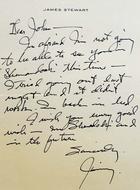 JAMES STEWART
Dear John –
I'm afraid I'm not going
to be able to see you in
Shenandoah this time –
I tried going out last
night and it didn't
work. I'm back in bed
I wish you every good
wish – in Shenandoah and
in the future
Sincerely
Jim